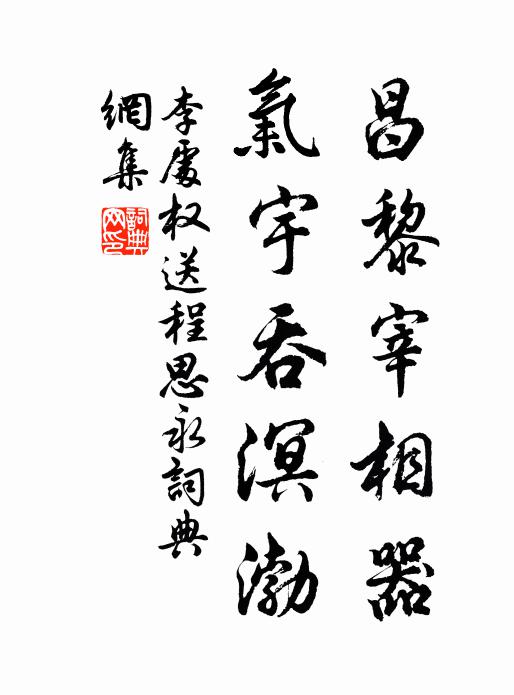 昌黎宰相器
氣宇吞溟渤
李處权送程思永詞典
網集
詞典
网印